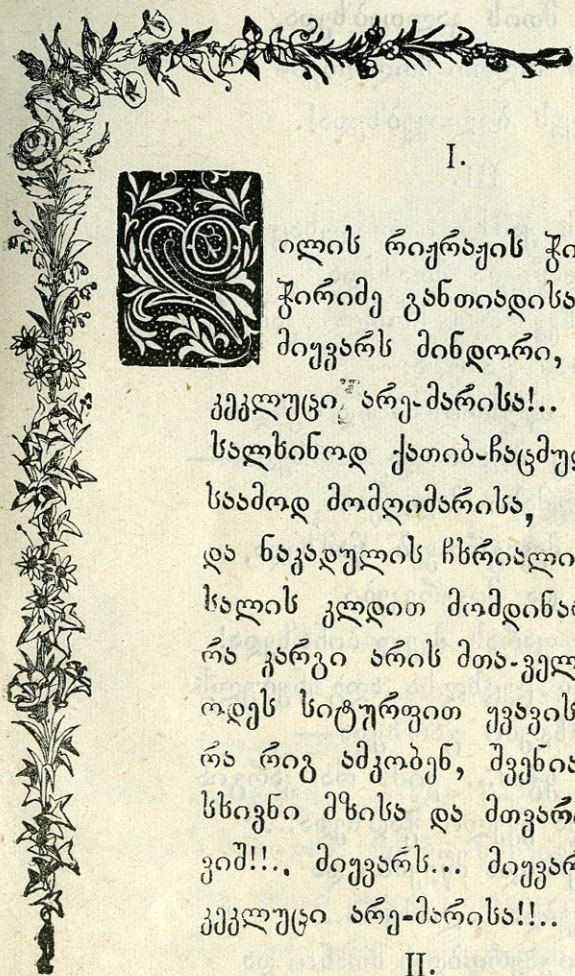 I.
დილის რიჟრაჟის ჭი
ჭირიმე განთიადისა
მიყვარს მინდორი,
კეკლუცი არე-მარისა!..
სალხინოდ ქათიბ-ჩაცმუ
საამოდ მომღიმარისა,
და ნაკადულის ჩხრიალი
სალის კლდით მომდინა
რა კარგი არის მთა-ველ
ოდეს სიტურფით ყვავის
რა რიგ ამკობენ, შვენია
სხივნი მზისა და მთვარ
ვიშ!!.. მიყვარს... მიყვარ
კეკლუცი არე-მარისა!!..
II